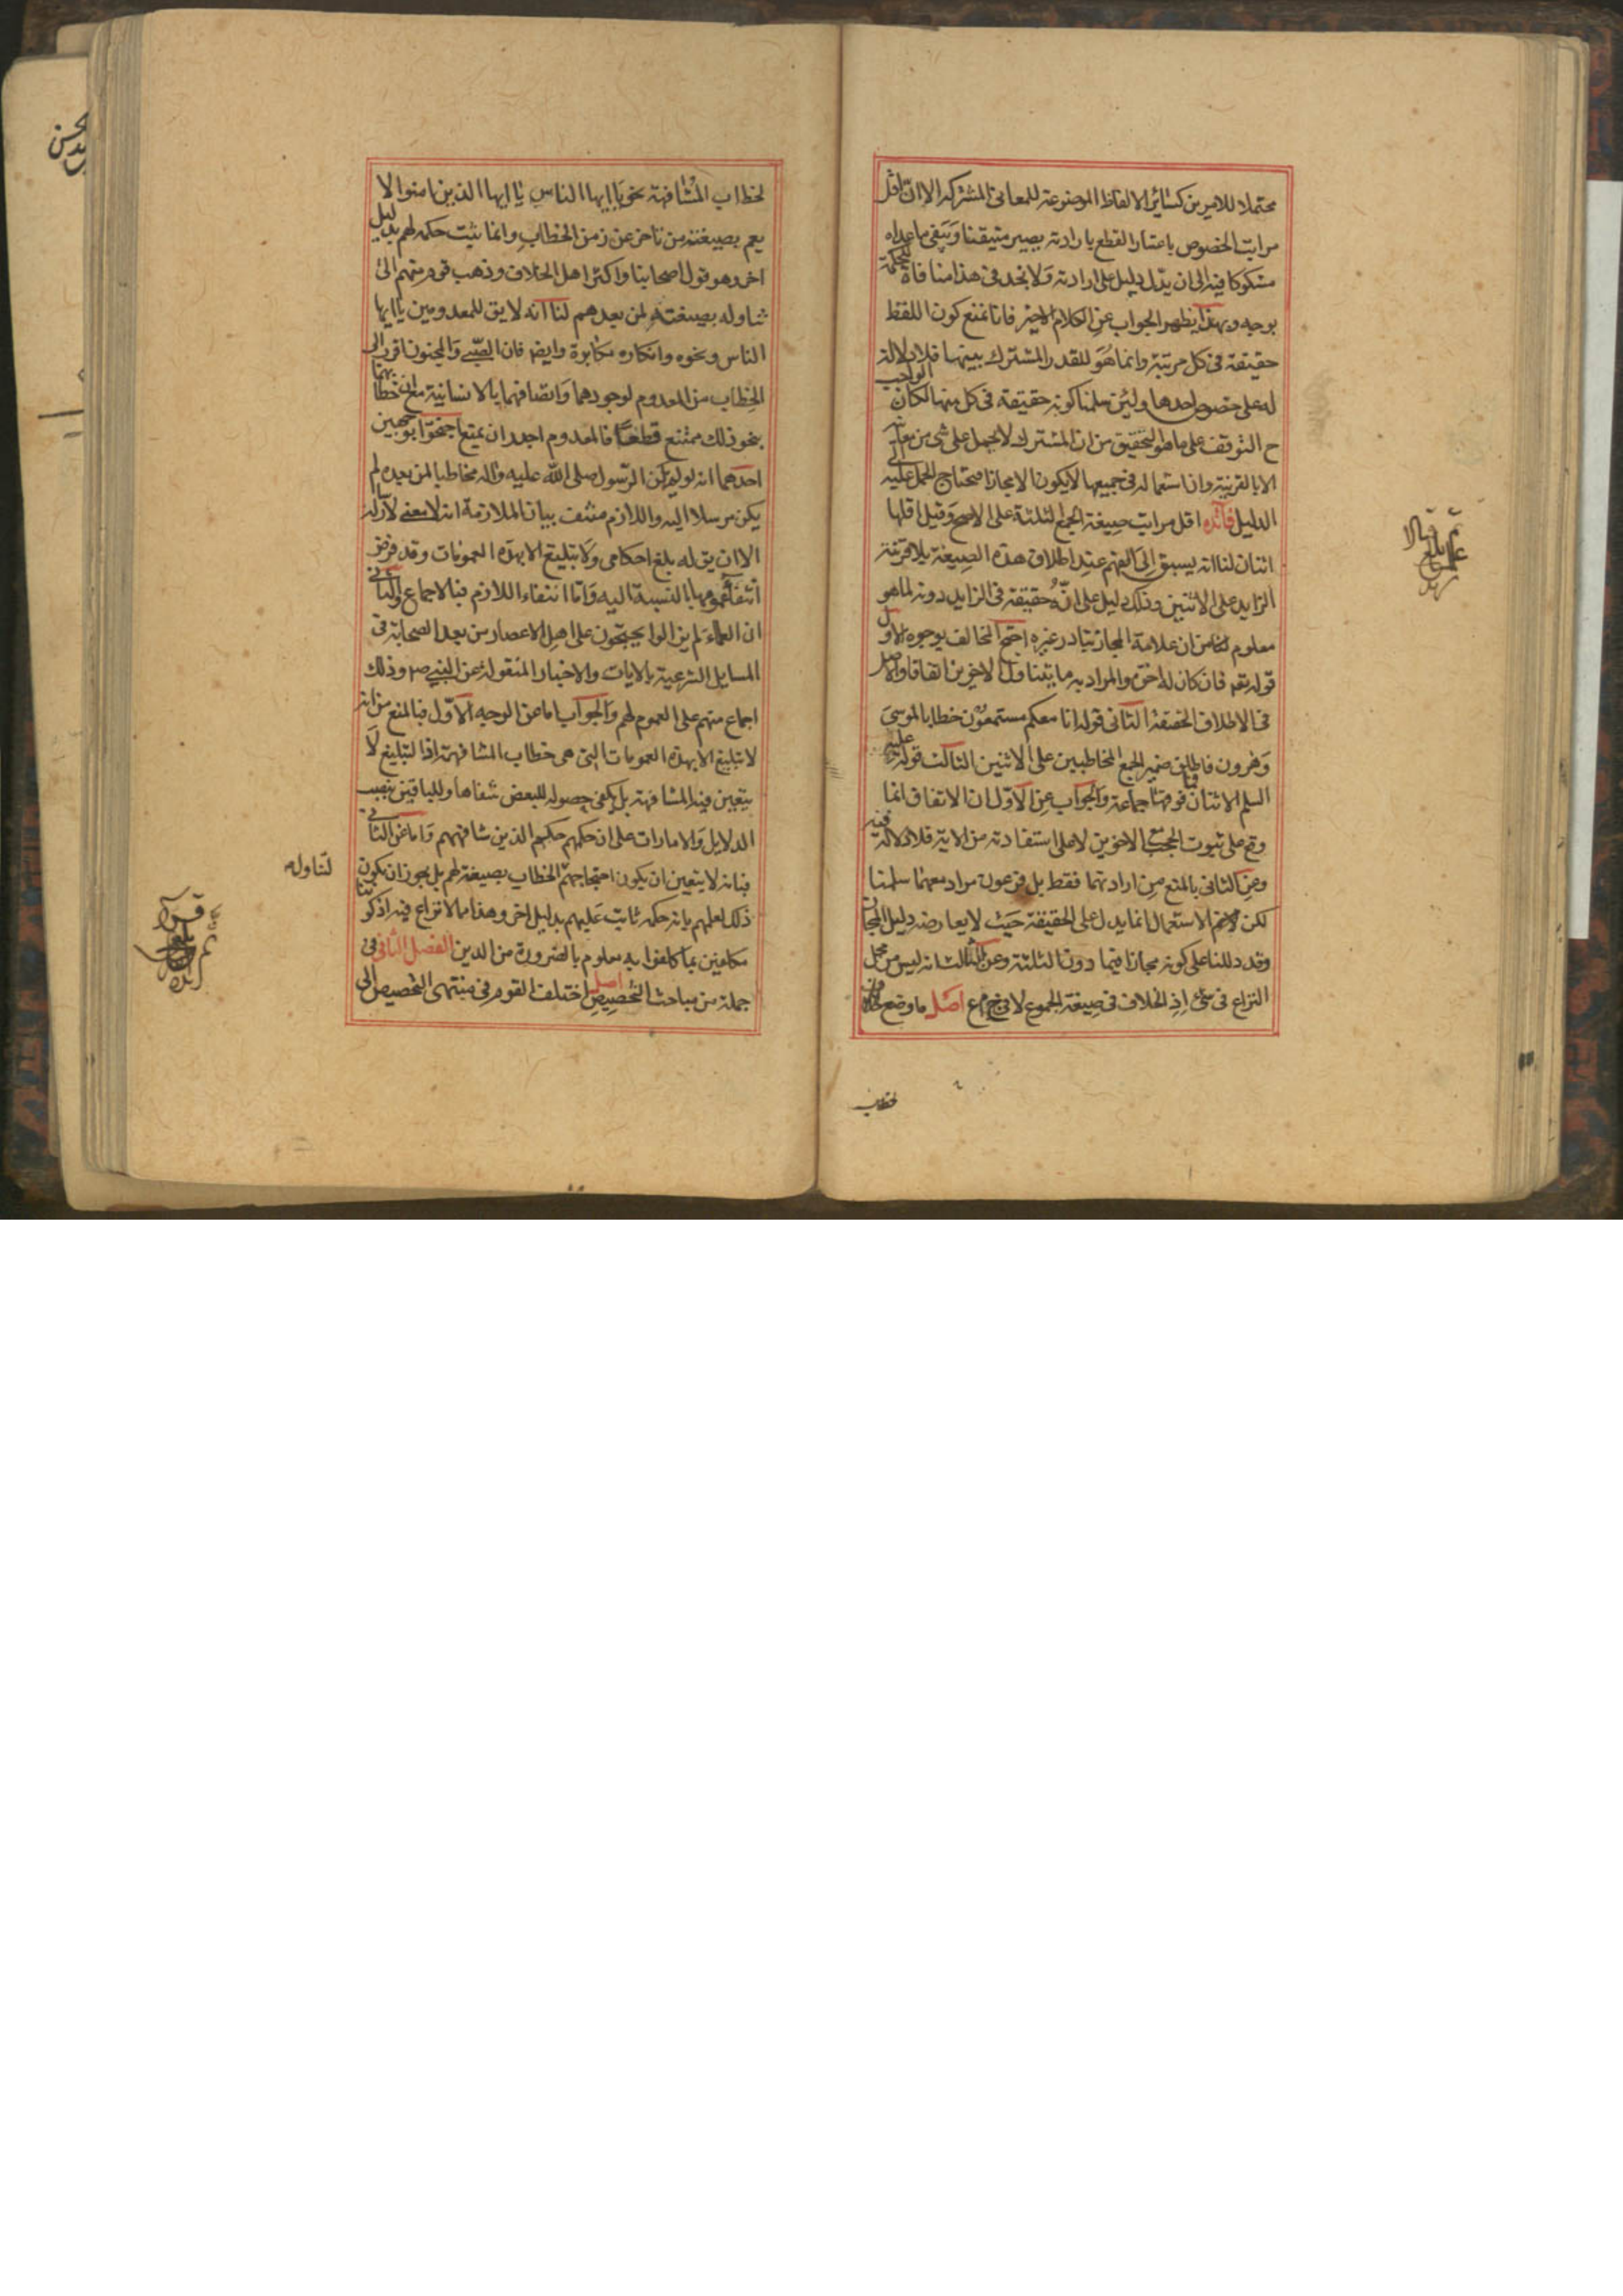 محتملا للامرين كسائر الالفاظ الموضوعة للمعانى المشتركه الا ان اقل
مراتب الخصوص باعتبار القطع بارادته يصير متيقنا ويبقى ما عداه
مشكوكا فيه الى ان يدل دليل على ارادته ولا نجد فى هذا منافاة للحكمة
بوجه وبهذا يظهر الجواب عن الكلام الاخير فانا نمنع كون اللفظ
حقيقة فى كل مرتبة وانما هو للقدر المشترك بينهما فلا دلالة
له على خصوص احدها ولئن سلمنا كونه حقيقة فى كل منها لكان الواجب
ح التوقف على ما هو التحقيق من ان المشترك لا يحمل على شئ من معانيه
الا بالقرينة وان استعماله فى جميعها لا يكون الا مجازا فيحتاج الحمل عليه الى
الدليل فائده اقل مراتب صيغة الجمع الثلثة على الاصح وقيل اقلها
اثنان لنا انه يسبق الى الفهم عند اطلاق هذه الصيغة بلا قرينة
الزايد على الاثنين وذلك دليل على انه حقيقة فى الزايد دونه لما هو
معلوم من ان علامة المجاز تبادر غيره احتج المخالف بوجوه الاول
قوله تعه فان كان له اخوة والمراد به ما يتناول الاخوين اتفاقا والاصل
فى الاطلاق الحقيقة الثانى قوله انا معكم مستمعون خطابا لموسى
وهرون فاطلق ضمير الجمع المخاطبين على الاثنين الثالث قوله عليه
السلم الاثنان فما فوقهما جماعة والجواب عن الاول ان الاتفاق انما
وقع على ثبوت الحجب مع الاخوين لا على استفادته من الاية فلا دلالة فيه
وعن الثانى بالمنع من ارادتهما فقط بل فرعون مراد معهما سلمنا
لكن الاستعمال انما يدل على الحقيقة حيث لا يعارضه دليل المجاز
وقد دللنا على كونه مجازا فيما دون الثلثة وعن الثالث انه ليس من محل
النزاع فى شئ اذ الخلاف فى صيغة الجموع لا فى ج م ع اصل ما وضع
لخطاب
لخطاب المشافهة نحو يا ايها الناس يا ايها الذين امنوا لا
يعم بصيغته من تاخر عن زمن الخطاب وانما يثبت حكمه لهم بدليل
اخر وهو قول اصحابنا واكثر اهل الخلاف وذهب قوم منهم الى
تناوله بصيغته لمن بعدهم لنا انه لا يق للمعدومين يا ايها
الناس ونحوه وانكاره مكابرة وايضه فان الصبى والمجنون اقرب الى
الخطاب من المعدوم لوجودهما واتصافهما بالانسانية مع ان خطابهما
بنحو ذلك ممتنع قطعا فالمعدوم اجدر ان يمتنع احتجوا بوجهين
احدهما انه لو لم يكن الرسول صلى الله عليه واله مخاطبا لمن بعده لم
يكن مرسلا اليه واللازم منتف بيان الملازمة انه لا معنى لارساله
الا ان يق له بلغ احكامى ولا تبليغ الا بهذه العمومات وقد فرض
انتفاء عمومها بالنسبة اليه واما انتفاء اللازم فبالاجماع والثانى
ان العلماء لم يزالوا يحتجون على اهل الاعصار من بعد الصحابة فى
المسايل الشرعية بالايات والاخبار المنقولة عن النبي ص وذلك
اجماع منهم على العموم لهم والجواب اما عن الوجه الاول فبالمنع من انه
لا تبليغ الا بهذه العمومات التى هى خطاب المشافهة اذ التبليغ لا
يتعين فيه المشافهة بل يكفى حصوله للبعض شفاها وللباقين بنصب
الدلايل والامارات على ان حكمهم حكم الذين شافههم واما عن الثانى
فبانه لا يتعين ان يكون احتجاجهم الخطاب بصيغة لهم بل يجوز ان يكون
لتناوله
ذلك لعلمهم بانه حكمه ثابت عليهم بدليل اخر وهذا مما لا نزاع فيه اذ كوننا
مكلفين بما كلفوا به معلوم بالضرورة من الدين الفصل الثانى فى
جملة من مباحث التخصيص اصل اختلف القوم فى منتهى التخصيص الى